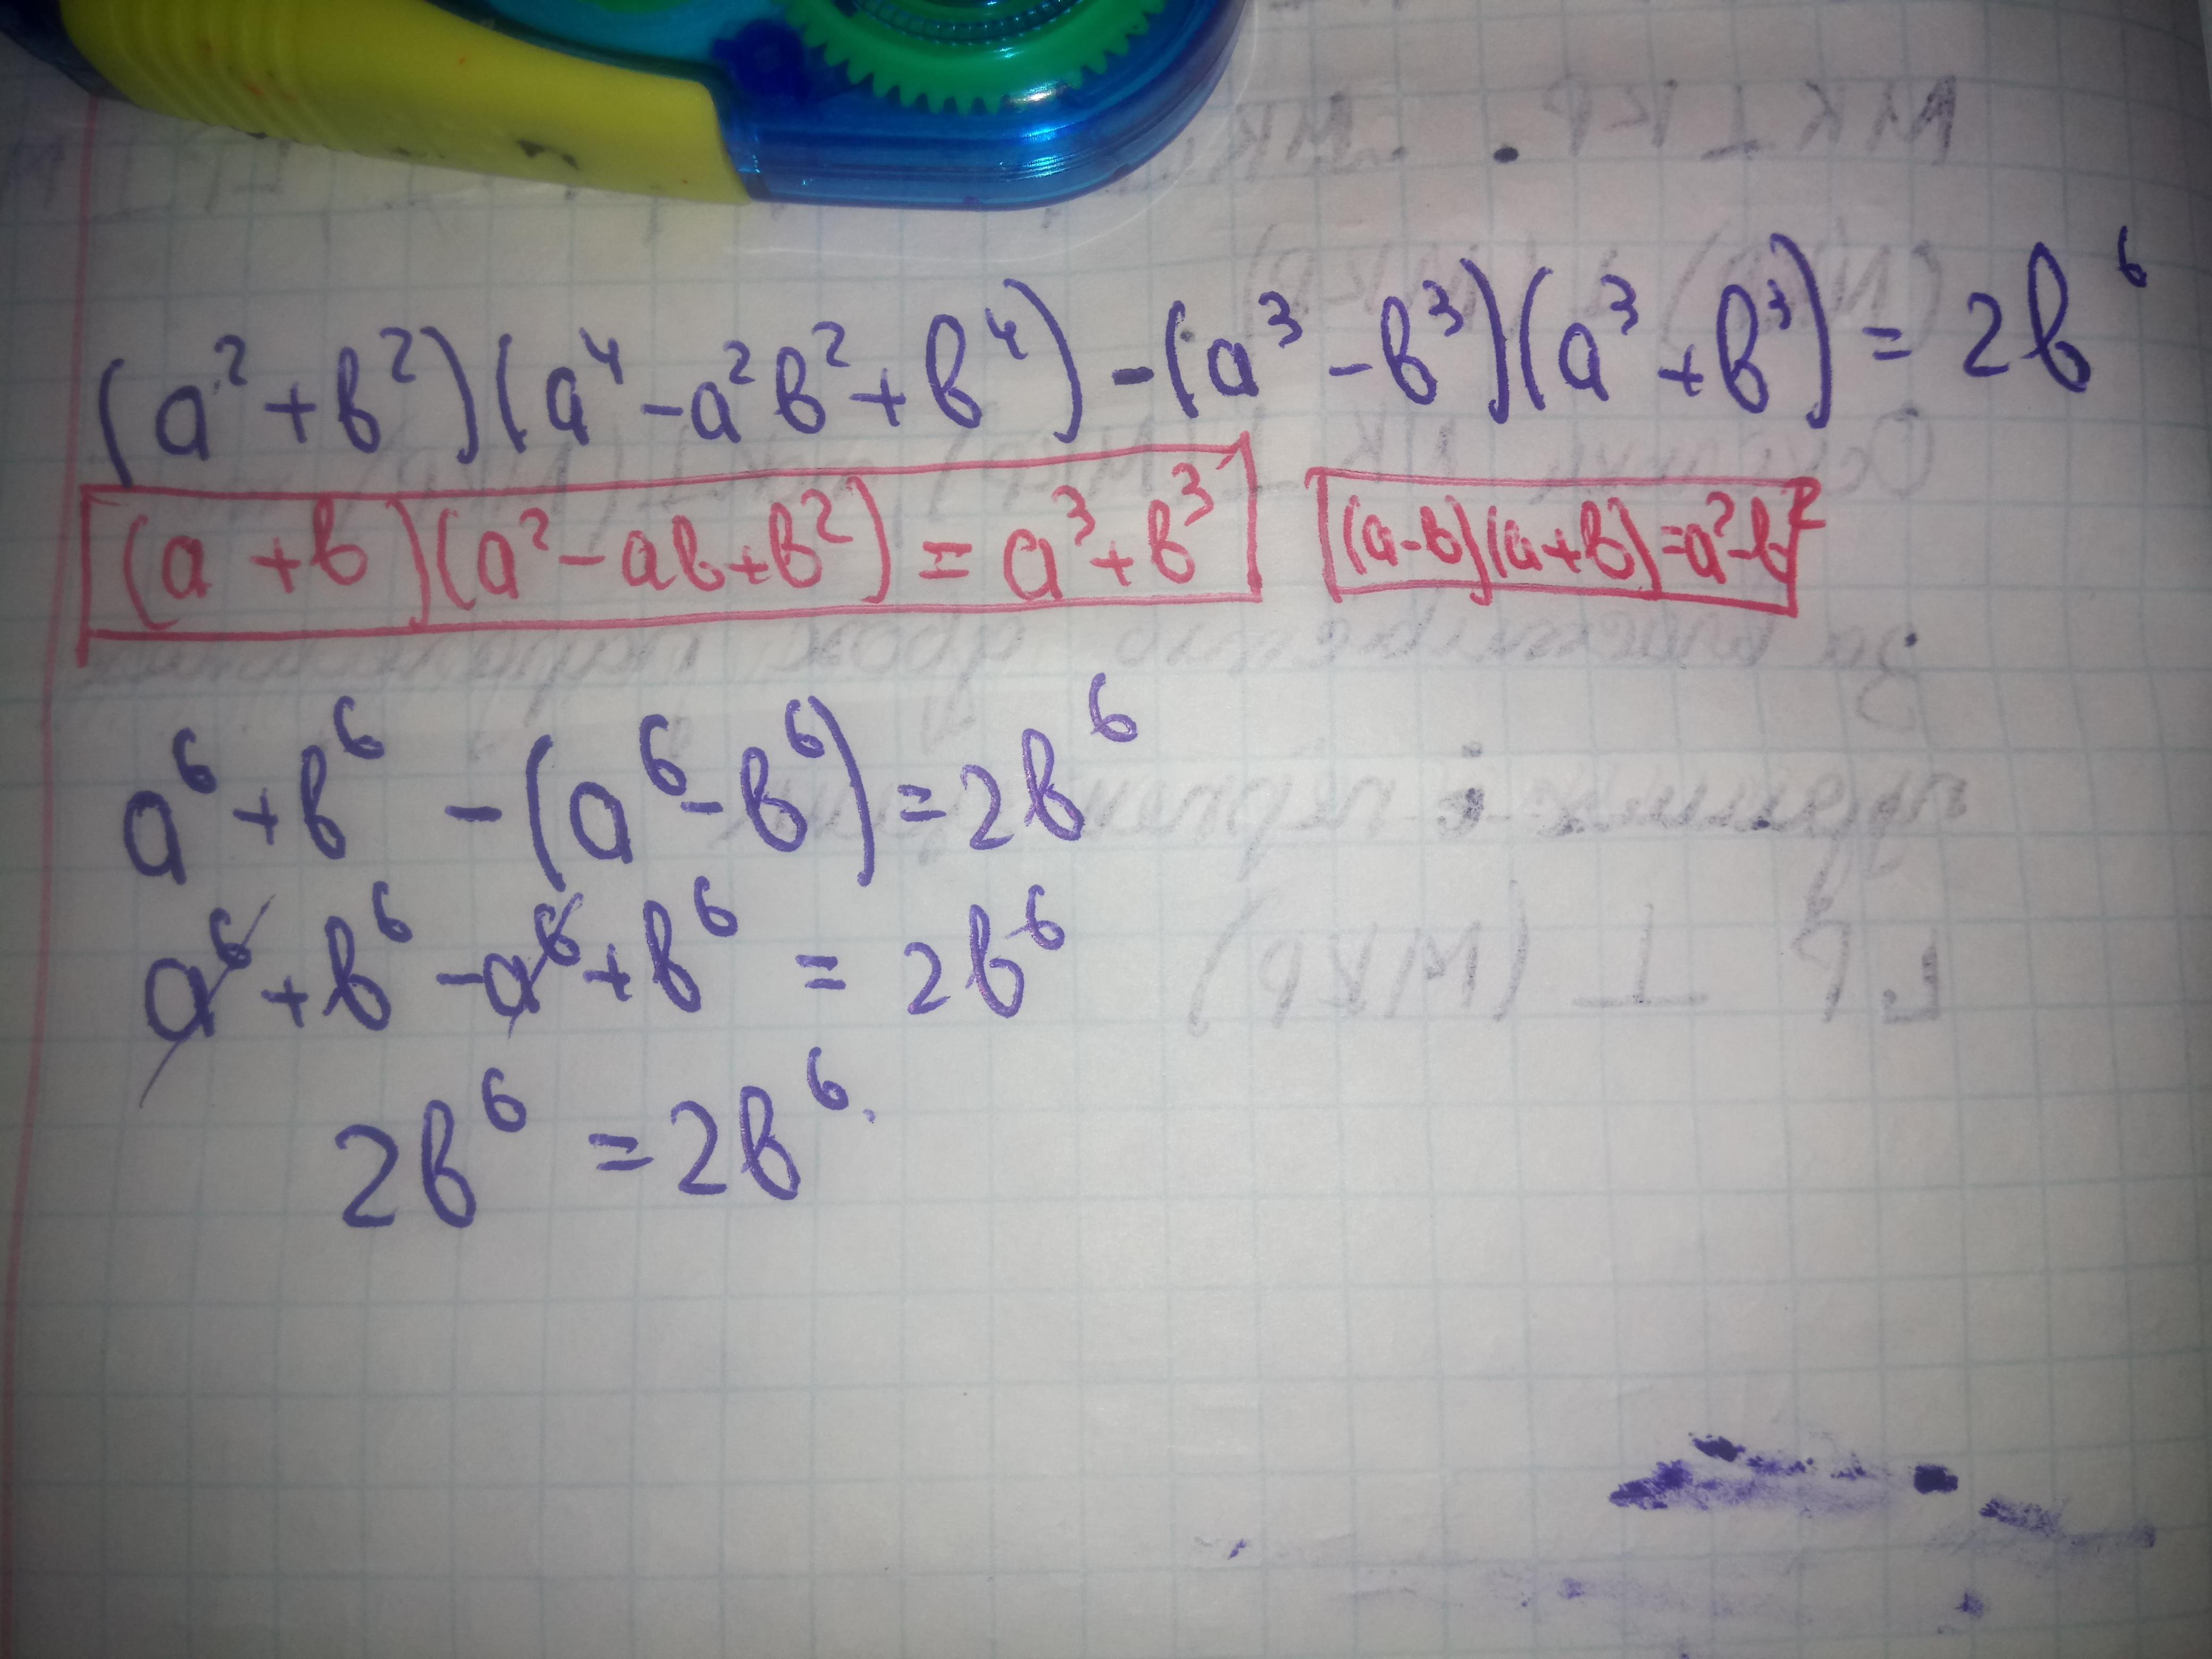 (a² + b²)(a⁴ - a²b² + b⁴) - (a³ - b³)(a³ + b³) = 2b⁶
(a + b)(a² - ab + b²) = a³ + b³ (a-b)(a+b) = a² - b²
a⁶ + b⁶ - (a⁶ - b⁶) = 2b⁶
a⁶ + b⁶ - a⁶ + b⁶ = 2b⁶
2b⁶ = 2b⁶.